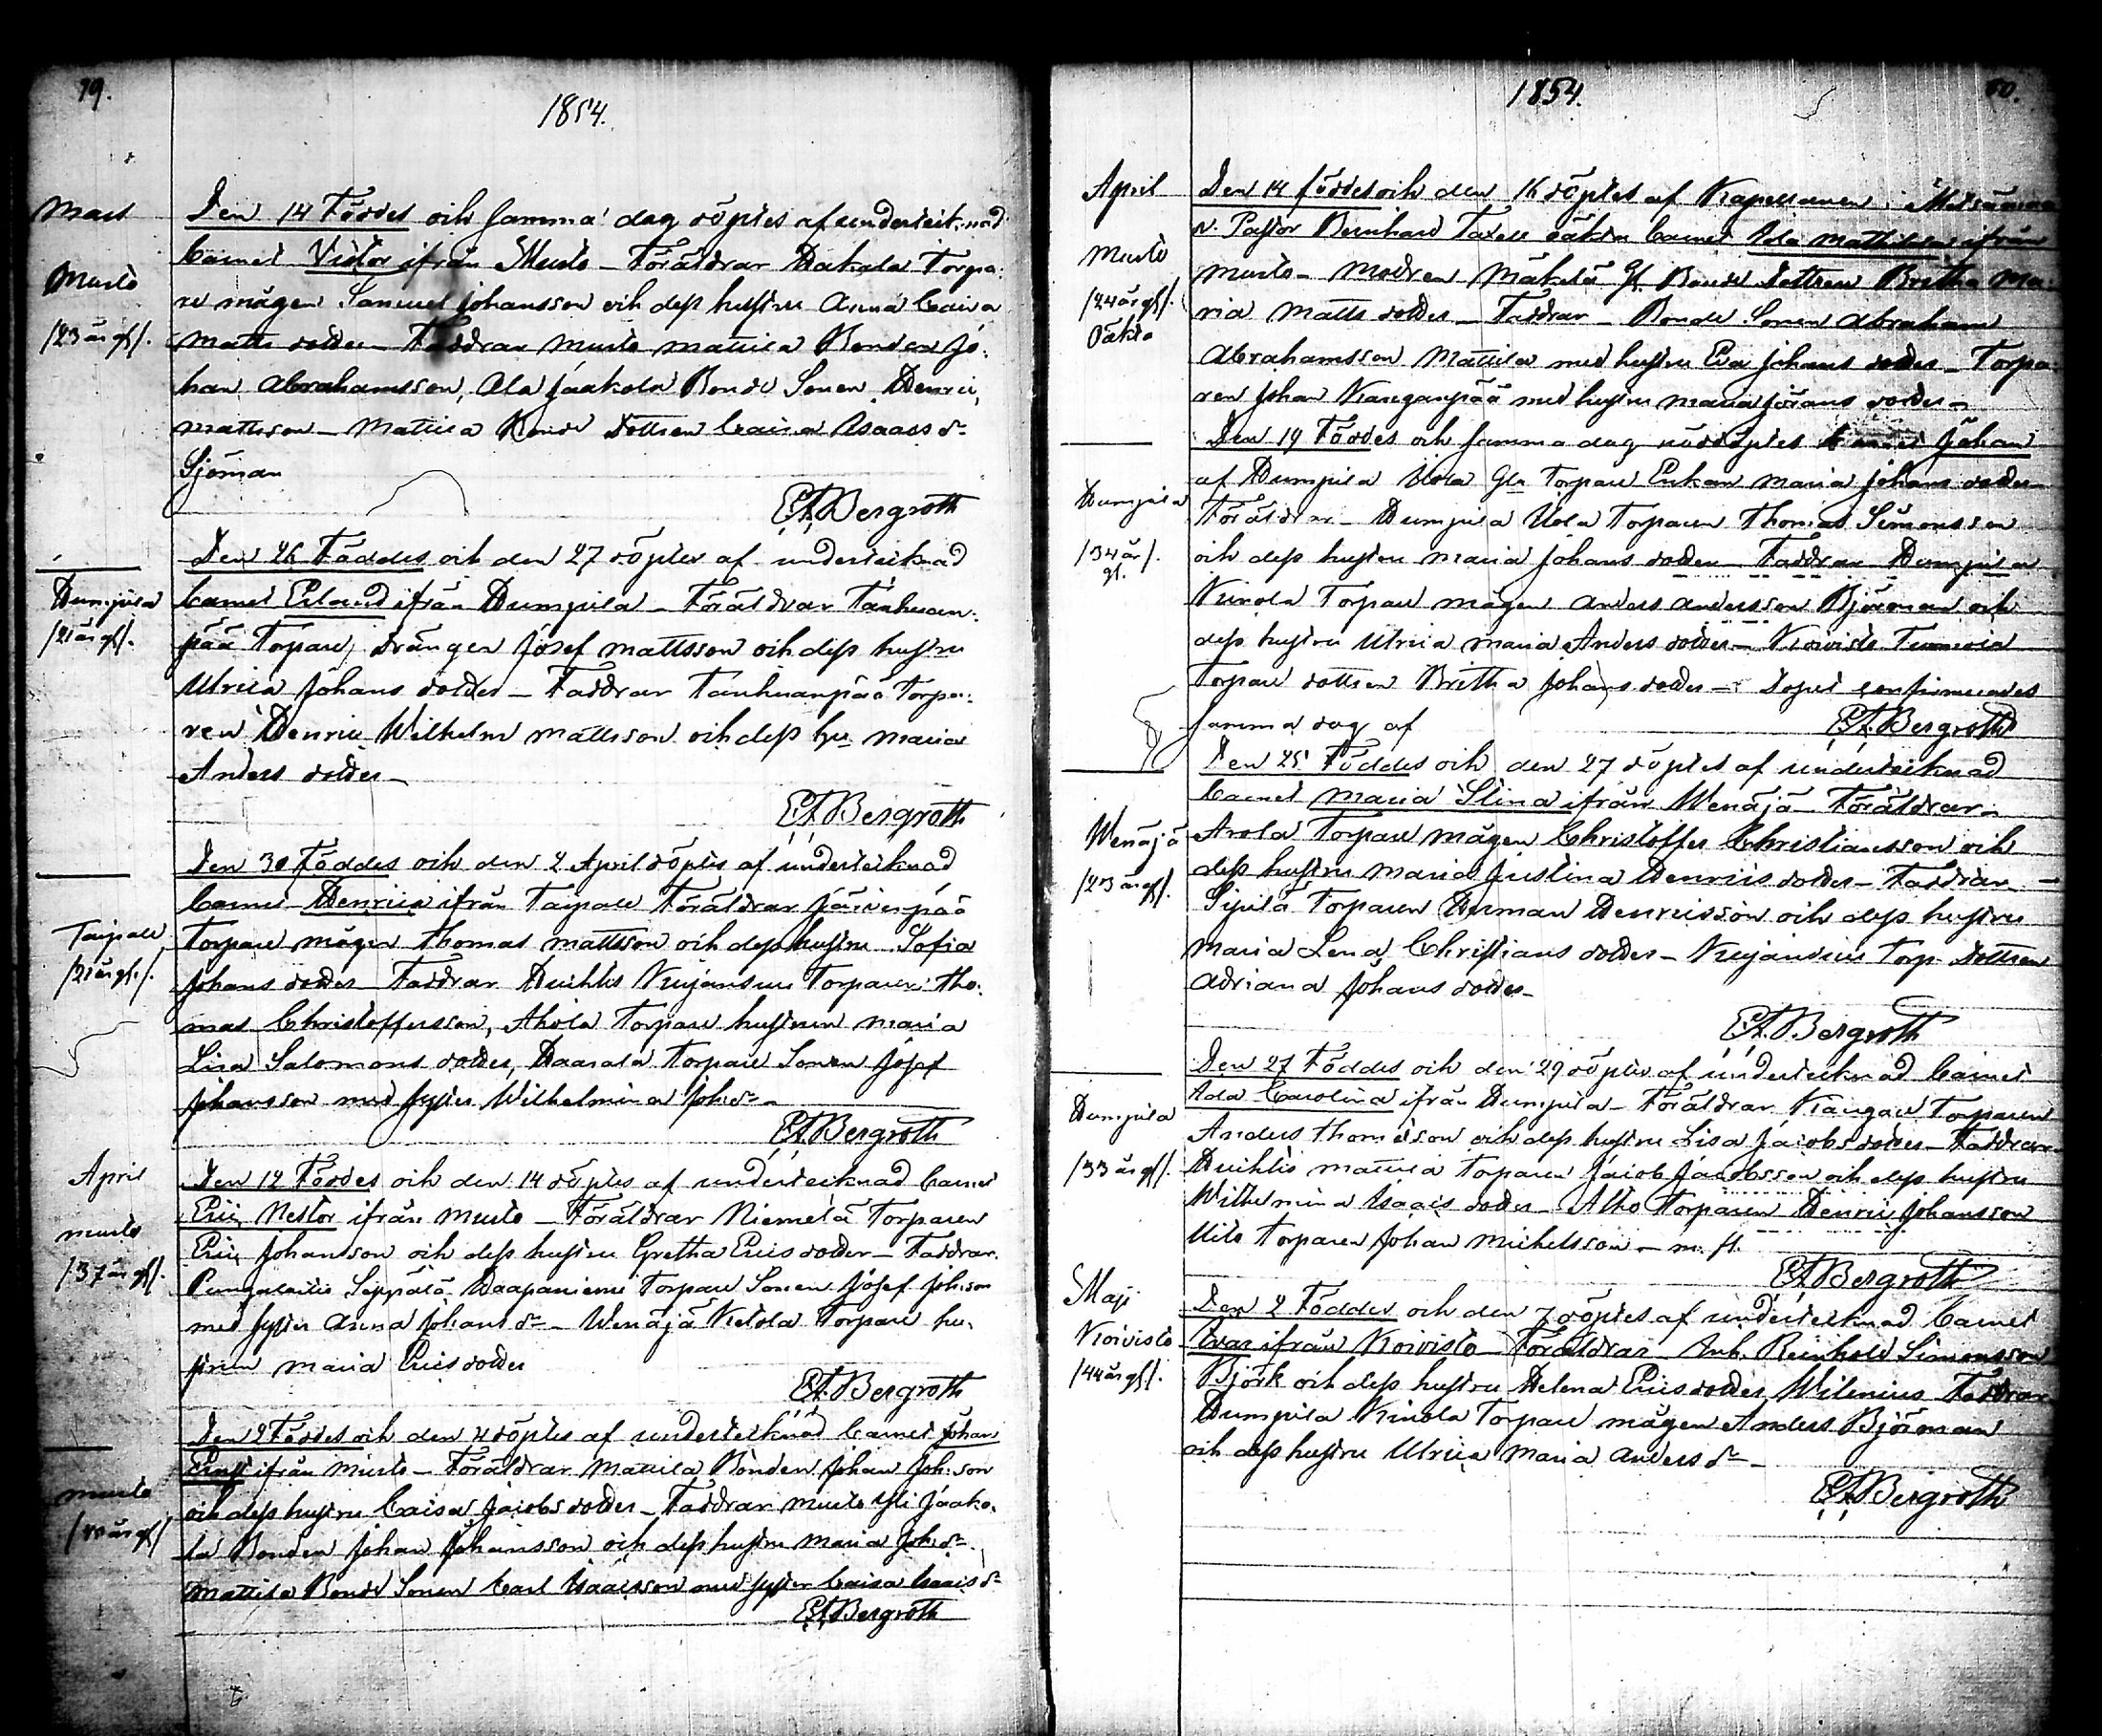 79.
1854.
Mars
Den 14 Föddes och samma dag döptes af undertecknad
Barnet Victor ifrån Murto – Föräldrar Hakala Torpa:
Murto
re mågen Samuel Johansson och dess hustru Anna Caisa
/23 år gl/.
Matts dotter – Faddrar Murto Mattila Bonden Jo:
han Abrahamsson, Ala Jaakola Bonde Sonen Henric
Mattsson – Mattila Bonde Dottren Caisa Isaacs dr
Sjöman
EABergroth
Den 26 Föddes och den 27 döptes af undertecknad
Humpila
Barnet Erland ifrån Humpila – Föräldrar Tanhuan:
/21 år gl/.
pää Torpare drängen Josef Mattsson och dess hustru
Ulrica Johans dotter – Faddrar Tanhuanpää Torpa:
ren Henric Wilhelm Mattsson och dess hu Maria
Anders dotter –
EABergroth
Den 30 Föddes och den 2 April döptes af undertecknad
Barnet Henrica ifrån Taipale Föräldrar Järvenpää
Taipale
Torpare mågen Thomas Mattsson och dess hustru Sofia
/21 år gl./.
Johans dotter – Faddrar Huhtis Kujansuu Torparen Tho:
mas Christoffersson, Ahola Torpare hustrun Maria
Lisa Salomons dotter, Haarala Torpare Sonen Josef
Johansson med syster Wilhelmina Joh: dr –
EABergroth
April
Den 12 Föddes och den 14 döptes af undertecknad barnet
Murto
Eric Nestor ifrån Murto – Föräldrar Niemelä Torparen
Eric Johansson och dess hustru Gretha Erics dotter – Faddrar
/37 år gl/.
Seppälä Haapaniemi Torpare Sonen Josef Joh:son
med syster Anna Johans dr – Wenäjä Torpare hu:
strun Maria Erics dotter
EABergroth
Den 2 Föddes och den 4 döptes af undertecknad Barnet Johan
Ernst ifrån Murto – Föräldrar Mattila Bonden Johan Joh:son
Murto
och dess hustru Caisa Jacobs dotter – Faddrar Murto Yli Jaako:
/40 år gl/
la Bonden Johan Johansson och dess hustru Maria Joh: dr
Mattila Bonde Sonen Carl Isaacsson med syster Caisa Isaacs dr
EABergroth
1854.
80.
April
Den 14 föddes och den 16 döptes af Kapellanen i Metsämaa
v. Pastor Bernhard Taxell oäkta barnet Ida Mathilda ifrån
Murto
Murto – Modren Mäkelä Bonde Dottren Britha Ma:
/24 år gl/.
ria Matts dotter – Faddrar – Bonde Sonen Abraham
Oäkta
Abrahamsson Mattila med hustru Eva Johans dotter – Torpa:
ren Johan Kanganpää med hustru Maria Jörans dotter –
Den 19 Föddes och samma dag nöddöptes barnet Johan
Humpila
af Humpila Uola Gla Torpare Enkan Maria Johans dotter
Föräldrar – Humpila Uola Torparen Thomas Simonsson
/34 år/.
gl.
och dess hustru Maria Johans dotter – Faddrar Humpila
Kunola Torpare mågen Anders Andersson Björman och
dess hustru Ulrica Maria Anders dotter – Koivisto Tuomola
Torpare dottren Britha Johans dotter – Dopet confirmerades
samma dag af
EABergroth
Den 25 Föddes och den 27 döptes af undertecknad
Barnet Maria Stina ifrån Wenäjä – Föräldrar
Wenäjä
Arola Torpare mågen Christoffer Christiansson och
/23 år gl/.
dess hustru Maria Justina Henrics dotter – Faddrar
Sipilä Torparen Herman Henricsson och dess hustru
Maria Lena Christians dotter – Kujansuu Torp. Dottren
Adriana Johans dotter –
EABergroth
Den 27 Föddes och den 29 döptes af undertecknad Barnet
Humpila
Ada Carolina ifrån Humpila – Föräldrar Kangas Torparen
Anders Thomasson och dess hustru Lisa Jacobs dotter – Faddrar
/33 år gl/.
Huhtis Mattila Torparen Jacob Jacobsson och dess hustru
Wilhelmina Isaacs dotter – Alho Torparen Henric Johansson
Torparen Johan Michelsson – m. fl.
EABergroth
Maji
Den 2 Föddes och den 7 döptes af undertecknad Barnet
Koivisto
Ivar ifrån Koivisto – Föräldrar Inh. Reinhold Simonsson
/44 år gl/.
Björk och dess hustru Helena Erics dotter Wilenius Faddrar
Humpila Kunola Torpare mågen Anders Björman
och dess hustru Ulrica Maria Anders dr –
EABergroth